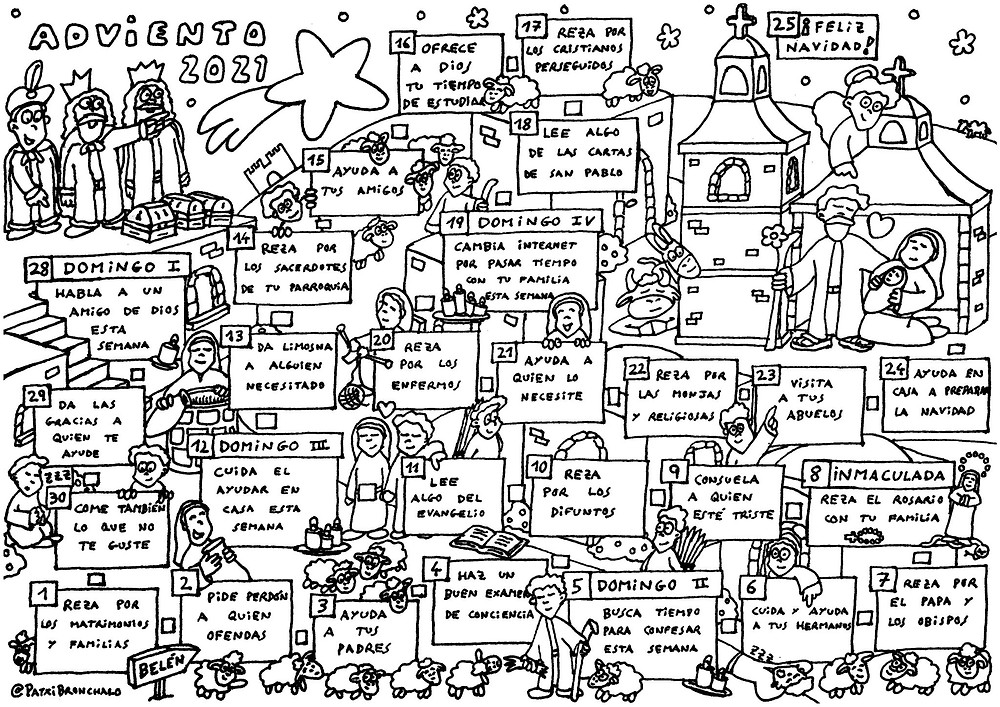 ADViENTO
2021
28 DOMiNGO I
HABLA A UN
AMIGO DE DIOS
ESTA
SEMANA
29
DA LAS
GRACIAS A
QUIEN TE
AYUDE
ZZZ
30
COME TAMBIÉN
LO QUE NO
TE GUSTE
1
REZA POR
LOS MATRIMONIOS
Y FAMILIAS
2
PIDE PERDÓN
A QUIEN
OFENDAS
3
AYUDA
A TUS
PADRES
4
HAZ UN
BUEN EXAMEN
DE CONCIENCIA
5 DOMINGO II
BUSCA TIEMPO
PARA CONFESAR
ESTA SEMANA
6
CUIDA Y AYUDA
A TUS HERMANOS
7
REZA POR
EL PAPA Y
LOS OBISPOS
8 iNMACULADA
REZA EL ROSARIO
CON TU FAMILIA
9
CONSUELA
A QUIEN
ESTÉ TRISTE
10
REZA
POR LOS
DIFUNTOS
11
LEE
ALGO DEL
EVANGELIO
12 DOMINGO III
CUIDA EL
AYUDAR EN
CASA ESTA
SEMANA
13
DA LIMOSNA
A ALGUIEN
NECESITADO
14
REZA POR
LOS SACERDOTES
DE TU PARROQUIA
15
AYUDA A
TUS AMIGOS
16
OFRECE
A DIOS
TU TIEMPO
DE ESTUDIAR
17
REZA POR
LOS CRISTIANOS
PERSEGUIDOS
18
LEE ALGO
DE LAS CARTAS
DE SAN PABLO
19 DOMINGO IV
CAMBIA INTERNET
POR PASAR TIEMPO
CON TU FAMILIA
ESTA SEMANA
20
REZA
POR LOS
ENFERMOS
21
AYUDA A
QUIEN LO
NECESITE
22
REZA POR
LAS MONJAS
Y RELIGIOSAS
23
VISITA
A TUS
ABUELOS
24
AYUDA EN
CASA A PREPARAR
LA NAVIDAD
25 ¡FELIZ
NAVIDAD!
BELÉN
zzz
@PATXIBRONCHALO